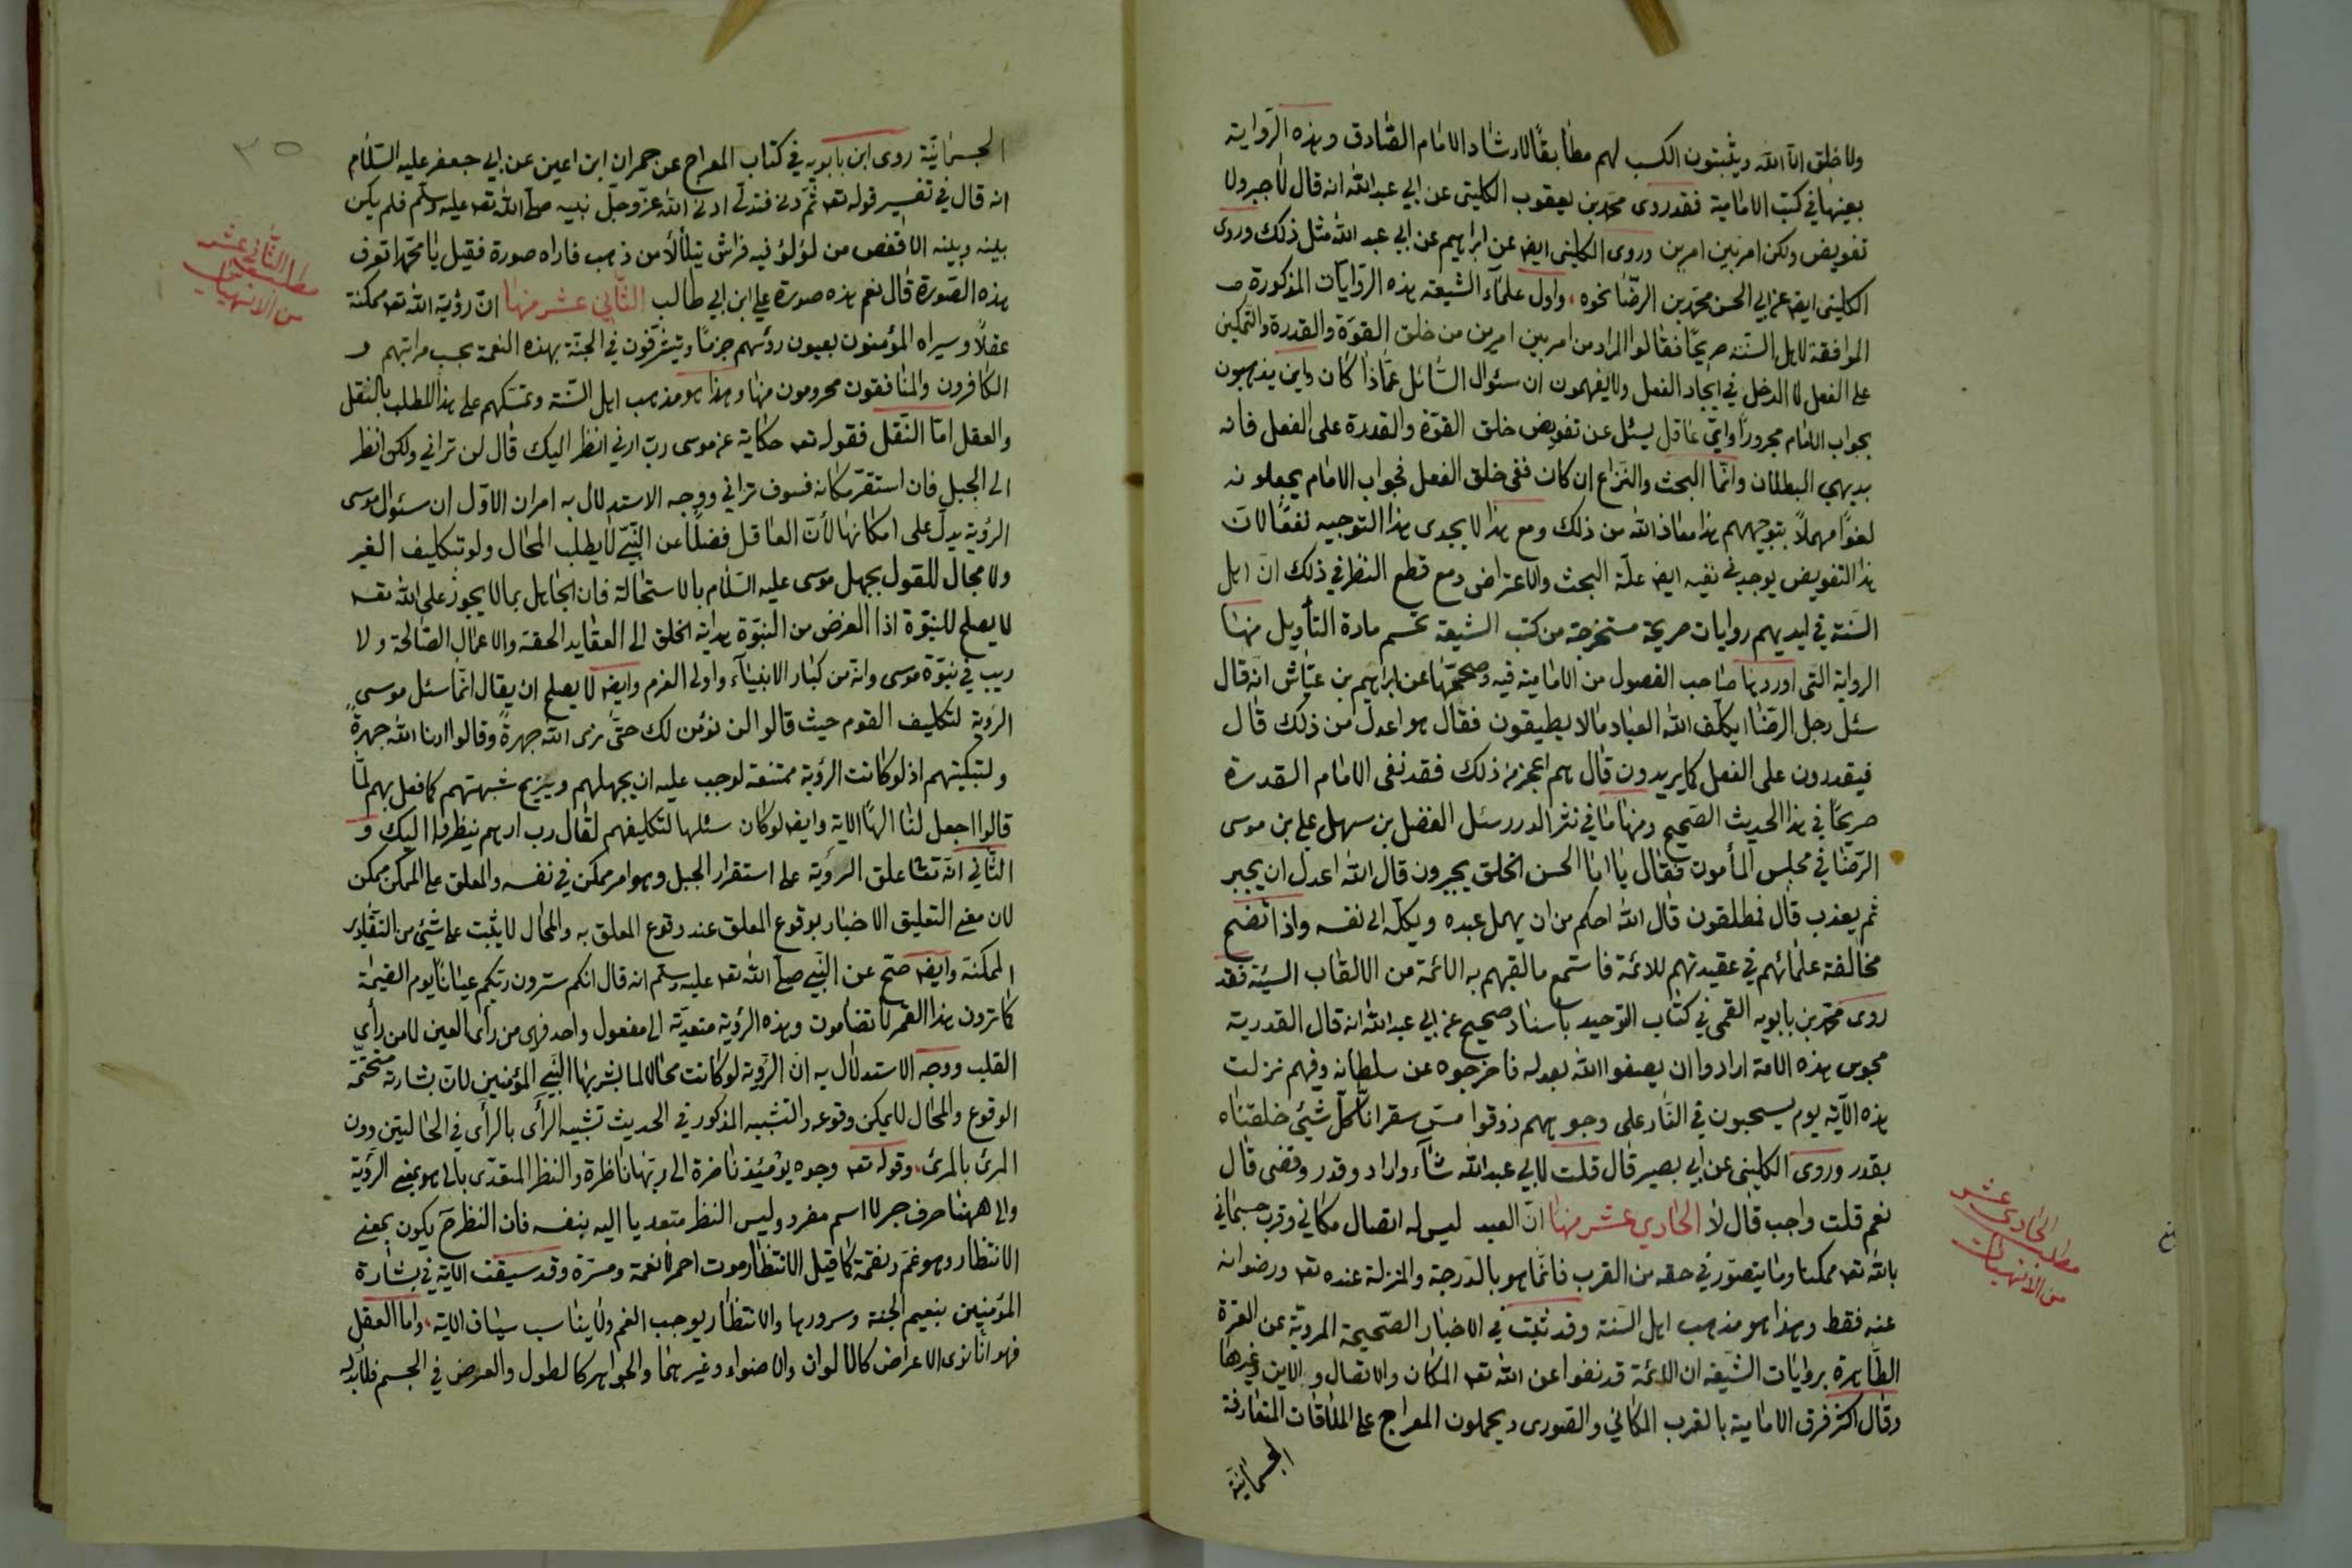 ولا خلق الا الله ويثبتون الكسب لهم مطابقًا لارشاد الامام الصّادق وهذه الرّواية
بعينها في كتب الامامية فقد روى محمّد بن يعقوب الكليني عن ابي عبد الله انه قال لا جبر ولا
تفويض ولكن امر بين امرين وروى الكليني ايضا عن ابراهيم عن ابي عبد الله مثل ذلك وروى
الكليني ايضا عن ابي الحسن محمّد بن الرضّا نحوه، واول علمآء الشيعة هذه الرّوايات المذكورة
الموافقة لاهل السّنة صريحًا فقالوا المراد من امر بين امرين من خلق القوّة والقدرة والتمكين
على الفعل لا الدخل في ايجاد الفعل ولا يفهمون ان سئوال السّائل عمّاذا كان واين يذهبون
بجواب الامام مجرورًا وايّ عاقل يسئل عن تفويض خلق القوّة والقدرة على الفعل فانه
بديهي البطلان وانّما البحث والنّزاع ان كان ففى خلق الفعل فجواب الامام يجعلونه
لغوًا مهملاً بتوجيههم هذا معاذ الله من ذلك ومع هذا لا يجدى هذا التوجيه نفعًا لانّ
هذا التفويض يوجد في نفيه ايضا علّة البحث والاعتراض ومع قطع النظر في ذلك انّ اهل
السّنة في ايديهم روايات صريحة مستخرجة من كتب الشيعة تحسم مادة التأويل منها
الرواية التى اوردها صاحب الفصول من الامامية فيه وصححّها عن ابراهيم بن عيّاش انّه قال
سئل رجل الرضّا ايكلّف الله العباد ما لا يطيقون فقال هو اعدل من ذلك قال
فيقدرون على الفعل كما يريدون قال هم اعجز من ذلك فقد نفى الامام القدرة
صريحًا في هذا الحديث الصّحيح ومنها ما في نثر الدرر سئل الفضل بن سهل علي بن موسى
الرّضا في مجلس المأمون فقال يا ابا الحسن الخلق يجبرون قال الله اعدل ان يجبر
ثم يعذب قال فمطلقون قال الله احكم من ان يهمل عبده ويكله الى نفسه واذا اتضح
مخالفة علمائهم في عقيدتهم للائمّة فاستمع ما لقبهم به الائمة من الالقاب السيئة فقد
روى محمّد بن بابويه القمى في كتاب التوحيد باسناد صحيح عن ابي عبد الله انه قال القدرية
مجوس هذه الامة ارادوا ان يصفوا الله بعدله فاخرجوه عن سلطانه وفيهم نزلت
هذه الآية يوم يسحبون في النّار على وجوههم ذوقوا مسّ سقر انّا كلّ شيئ خلقناه
بقدر وروى الكليني عن ابي بصير قال قلت لابي عبد الله شآء واراد وقدر وقضى قال
نعم قلت واجب قال لا الحادي عشر منها انّ العبد ليس له اتصال مكاني وقرب جسماني
بالله تعه ممكنا وما يتصوّر في حقه من القرب فانّما هو بالدّرجة والمنزلة عنده تعه ورضوانه
عنه فقط وهذا هو مذهب اهل السّنة وقد ثبت في الاخبار الصّحيحة المرويّة عن العترة
الطّاهرة بروايات الشّيعه ان الائمّة قد نفوا عن الله تعه المكان والاتصال والاين وغيرها
وقال اكثر فرق الامامية بالقرب المكاني والصورى ويحملون المعراج على الملاقات المتعارفة
الجسمانيّة
مطلب الحادى عشر
من الالٰهيات
٣٥
الجسمانيّة روى ابن بابويه في كتاب المعراج عن حمران ابن اعين عن ابي جعفر عليه السّلام
انه قال في تفسير قوله تعه ثمّ دنى فتدلّى ادنى الله عزّوجلّ نبيه صلّى الله تعه عليه وسلّم فلم يكن
بينه وبينه الا قفص من لؤلؤ فيه فراش يتلألأ من ذهب فاراه صورة فقيل يا محمّد اتعرف
هذه الصّورة قال نعم هذه صورة علي ابن ابي طالب الثّاني عشر منها انّ رؤية الله تعه ممكنة
عقلاً وسيراه المؤمنون بعيون رؤسهم جزمًا ويتشرّفون في الجنّة بهذه النعمة بحسب مراتبهم و
الكافرون والمنافقون محرومون منها وهذا هو مذهب اهل السّنة وتمسّكهم على هذا المطلب بالنقل
والعقل امّا النّقل فقوله تعه حكاية عن موسى ربّ ارني انظر اليك قال لن تراني ولكن انظر
الى الجبل فان استقرّ مكانه فسوف تراني ووجه الاستدلال به امران الاوّل ان سئوال موسى
الرؤية يدلّ على امكانها لأنّ العاقل فضلًا عن النّبيّ لا يطلب المحال ولو بتكليف الغير
ولا مجال للقول بجهل موسى عليه السّلام بالاستحالة فان الجاهل بما لا يجوز على الله تعه
لا يصلح للنبوّة اذ الغرض من النبوّة هداية الخلق الى العقايد الحقة والاعمال الصّالحة ولا
ريب في نبوّة موسى وانّه من كبار الانبيآء واولى العزم وايضا لا يصلح ان يقال انّما سئل موسى
الرّوية لتكليف القوم حيث قالوا لن نؤمن لك حتّى نرى الله جهرةً وقالوا ارنا الله جهرةً
ولتبكيتهم اذ لو كانت الرؤية ممتنعة لوجب عليه ان يجهلهم ويزيح شبهتهم كما فعل بهم لمّا
قالوا اجعل لنا الهًا الاية وايضا لو كان سئلها لتكليفهم لقال رب ارهم ينظروا اليك و
الثّاني انّه تعا علق الرؤية على استقرار الجبل وهو امر ممكن في نفسه والمعلق على الممكن ممكن
لان معنى التعليق الاخبار بوقوع المعلق عند وقوع المعلق به والمحال لا يثبت على شيئ من التقادير
الممكنة وايضا صحّ عن النّبي صلّى الله تعه عليه وسلّم انه قال انكم سترون ربّكم عيانًا يوم القيمة
كما ترون هذا القمر لا تضامون وهذه الرؤية متعدّية الى مفعول واحد فهى من رأى العين لا من رأي
القلب ووجه الاستدلال به انّ الرّوية لو كانت محالا لما بشر بها النّبي المؤمنين لانّ بشارته متحتّمة
الوقوع والمحال لا يمكن وقوعه والتشبيه المذكور في الحديث تشبيه الرأى بالرأى في الحالتين دون
المرئ بالمرئ، وقوله تعه وجوه يومئيذ ناضرة الى ربّها ناظرة والنظر المتعدّى بالى هو بمعنى الرّؤية
والى ههنا حرف جر لا اسم مفرد وليس النظر متعديا اليه بنفسه فان النظر ح يكون بمعنى
الانتظار وهو غمّ ونقمة كما قيل الانتظار موت احمر لا نعمة ومسرّة وقد سيقت الاية في بشارة
المؤمنين بنعيم الجنة وسرورها والانتظار يوجب الغم ولا يناسب سياق الاية، واما العقل
فهو انا نرى الاعراض كالالوان والاضواء وغيرهما والجواهر كالطول والعرض في الجسم فلا بدّ له
مطلب الثّانى عشر
من الالٰهيات